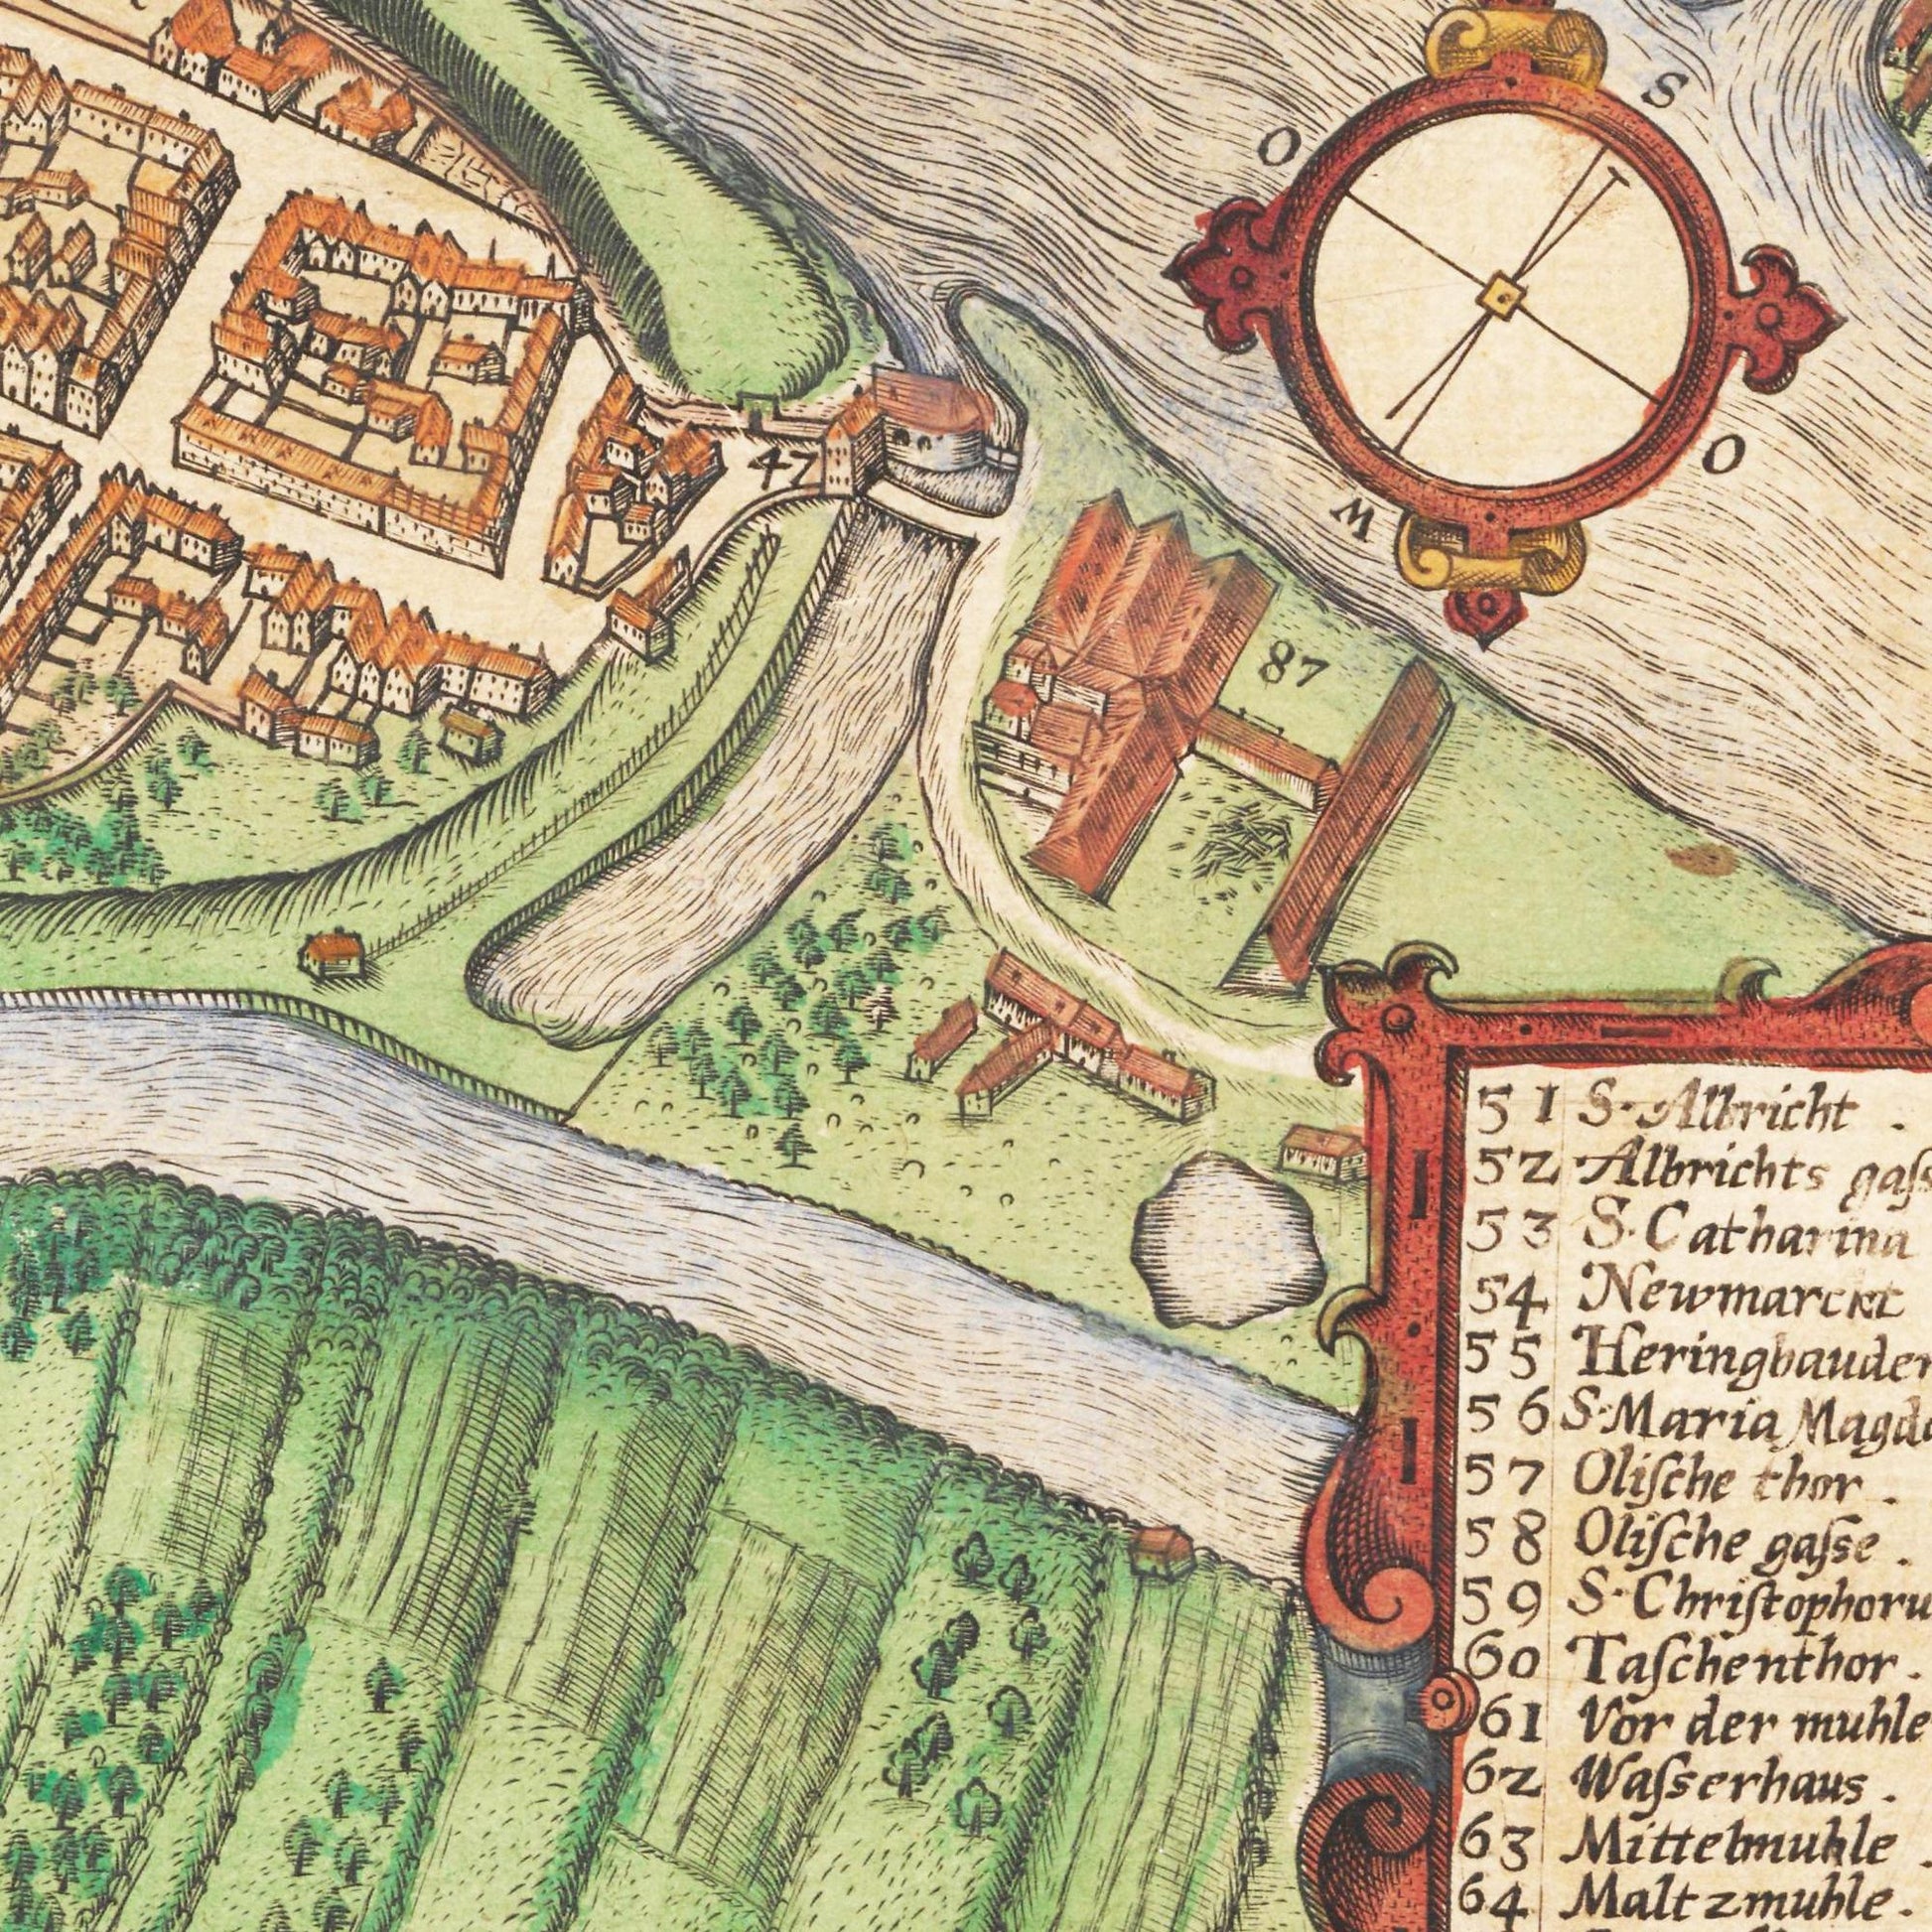 S
O
O
W
47
87
51 S. Albricht .
52 Albrichts gaſs
53 S. Catharina
54 Newmarckt
55 Heringbauden
56 S. Maria Magda
57 Oliſche thor .
58 Oliſche gaſse .
59 S. Chriſtophoru
60 Taſchenthor .
61 Vor der muhle
62 Waſserhaus .
63 Mittelmuhle .
64 Maltzmuhle .